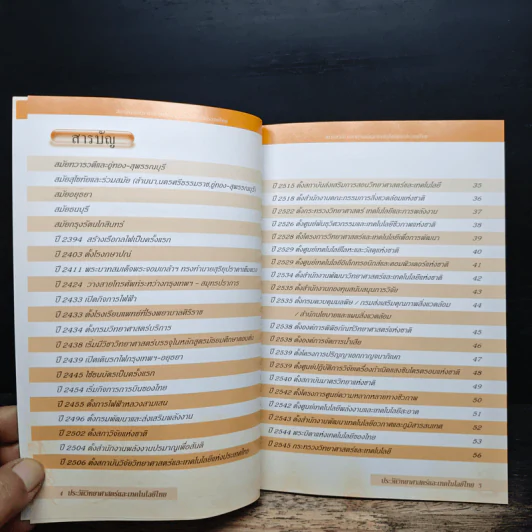 สารบัญ
สมัยทวารวดีและอู่ทอง-สุพรรณบุรี
สมัยสุโขทัยและร่วมสมัย (ล้านนา,นครศรีธรรมราช,อู่ทอง-สุพรรณบุรี)
สมัยอยุธยา
สมัยธนบุรี
สมัยกรุงรัตนโกสินทร์
ปี 2394 สร้างเรือกลไฟเป็นครั้งแรก
ปี 2403 ตั้งโรงกษาปณ์
ปี 2411 พระบาทสมเด็จพระจอมเกล้าฯ ทรงคำนวณสุริยุปราคาเต็มดวง
ปี 2424 วางสายโทรศัพท์ระหว่างกรุงเทพฯ - สมุทรปราการ
ปี 2433 เปิดกิจการไฟฟ้า
ปี 2433 ตั้งโรงเรียนแพทย์ที่โรงพยาบาลศิริราช
ปี 2434 ตั้งกรมวิทยาศาสตร์บริการ
ปี 2438 เริ่มมีวิชาวิทยาศาสตร์บรรจุในหลักสูตรมัธยมศึกษาตอนต้น
ปี 2439 เปิดเดินรถไฟกรุงเทพฯ-อยุธยา
ปี 2445 ใช้ธนบัตรเป็นครั้งแรก
ปี 2454 เริ่มกิจการการบินของไทย
ปี 2455 ตั้งการไฟฟ้าหลวงสามเสน
ปี 2496 ตั้งกรมพัฒนาและส่งเสริมพลังงาน
ปี 2502 ตั้งสภาวิจัยแห่งชาติ
ปี 2504 ตั้งสำนักงานพลังงานปรมาณูเพื่อสันติ
ปี 2506 ตั้งสถาบันวิจัยวิทยาศาสตร์และเทคโนโลยีแห่งประเทศไทย
4 ประวัติวิทยาศาสตร์และเทคโนโลยีไทย
ปี 2515 ตั้งสถาบันส่งเสริมการสอนวิทยาศาสตร์และเทคโนโลยี 35
ปี 2518 ตั้งสำนักงานคณะกรรมการสิ่งแวดล้อมแห่งชาติ 36
ปี 2522 ตั้งกระทรวงวิทยาศาสตร์ เทคโนโลยีและการพลังงาน 37
ปี 2526 ตั้งศูนย์พันธุวิศวกรรมและเทคโนโลยีชีวภาพแห่งชาติ 38
ปี 2528 ตั้งโครงการวิทยาศาสตร์และเทคโนโลยีเพื่อการพัฒนา 39
ปี 2529 ตั้งศูนย์เทคโนโลยีโลหะและวัสดุแห่งชาติ 40
ปี 2529 ตั้งศูนย์เทคโนโลยีอิเล็กทรอนิกส์และคอมพิวเตอร์แห่งชาติ 41
ปี 2534 ตั้งสำนักงานพัฒนาวิทยาศาสตร์และเทคโนโลยีแห่งชาติ 42
ปี 2535 ตั้งสำนักงานกองทุนสนับสนุนการวิจัย 43
ปี 2535 ตั้งกรมควบคุมมลพิษ / กรมส่งเสริมคุณภาพสิ่งแวดล้อม 44
/ สำนักนโยบายและแผนสิ่งแวดล้อม
ปี 2538 ตั้งองค์การพิพิธภัณฑ์วิทยาศาสตร์แห่งชาติ 45
ปี 2538 ตั้งองค์การจัดการน้ำเสีย 46
ปี 2539 ตั้งโครงการปริญญาเอกกาญจนาภิเษก 47
ปี 2539 ตั้งศูนย์ปฏิบัติการวิจัยเครื่องกำเนิดแสงซินโครตรอนแห่งชาติ 48
ปี 2540 ตั้งสถาบันมาตรวิทยาแห่งชาติ 49
ปี 2542 ตั้งโครงการศูนย์ความหลากหลายทางชีวภาพ 50
ปี 2542 ตั้งศูนย์เทคโนโลยีพลังงานและเทคโนโลยีสะอาด 51
ปี 2543 ตั้งสำนักงานพัฒนาเทคโนโลยีอวกาศและภูมิสารสนเทศ 52
ปี 2544 พระบิดาแห่งเทคโนโลยีของไทย 53
ปี 2545 กระทรวงวิทยาศาสตร์และเทคโนโลยี 56
ประวัติวิทยาศาสตร์และเทคโนโลยีไทย 5